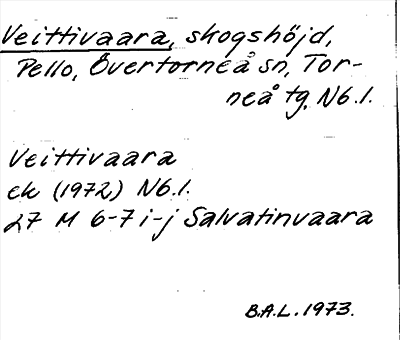 Veittivaara, skogshöjd,
Pello, Övertorneå sn, Tor-
neå tg, Nb.l.
Veittivaara
ek (1972) Nb.l.
27 M 6-7 i-j Salvatinvaara
B.A.L. 1973.